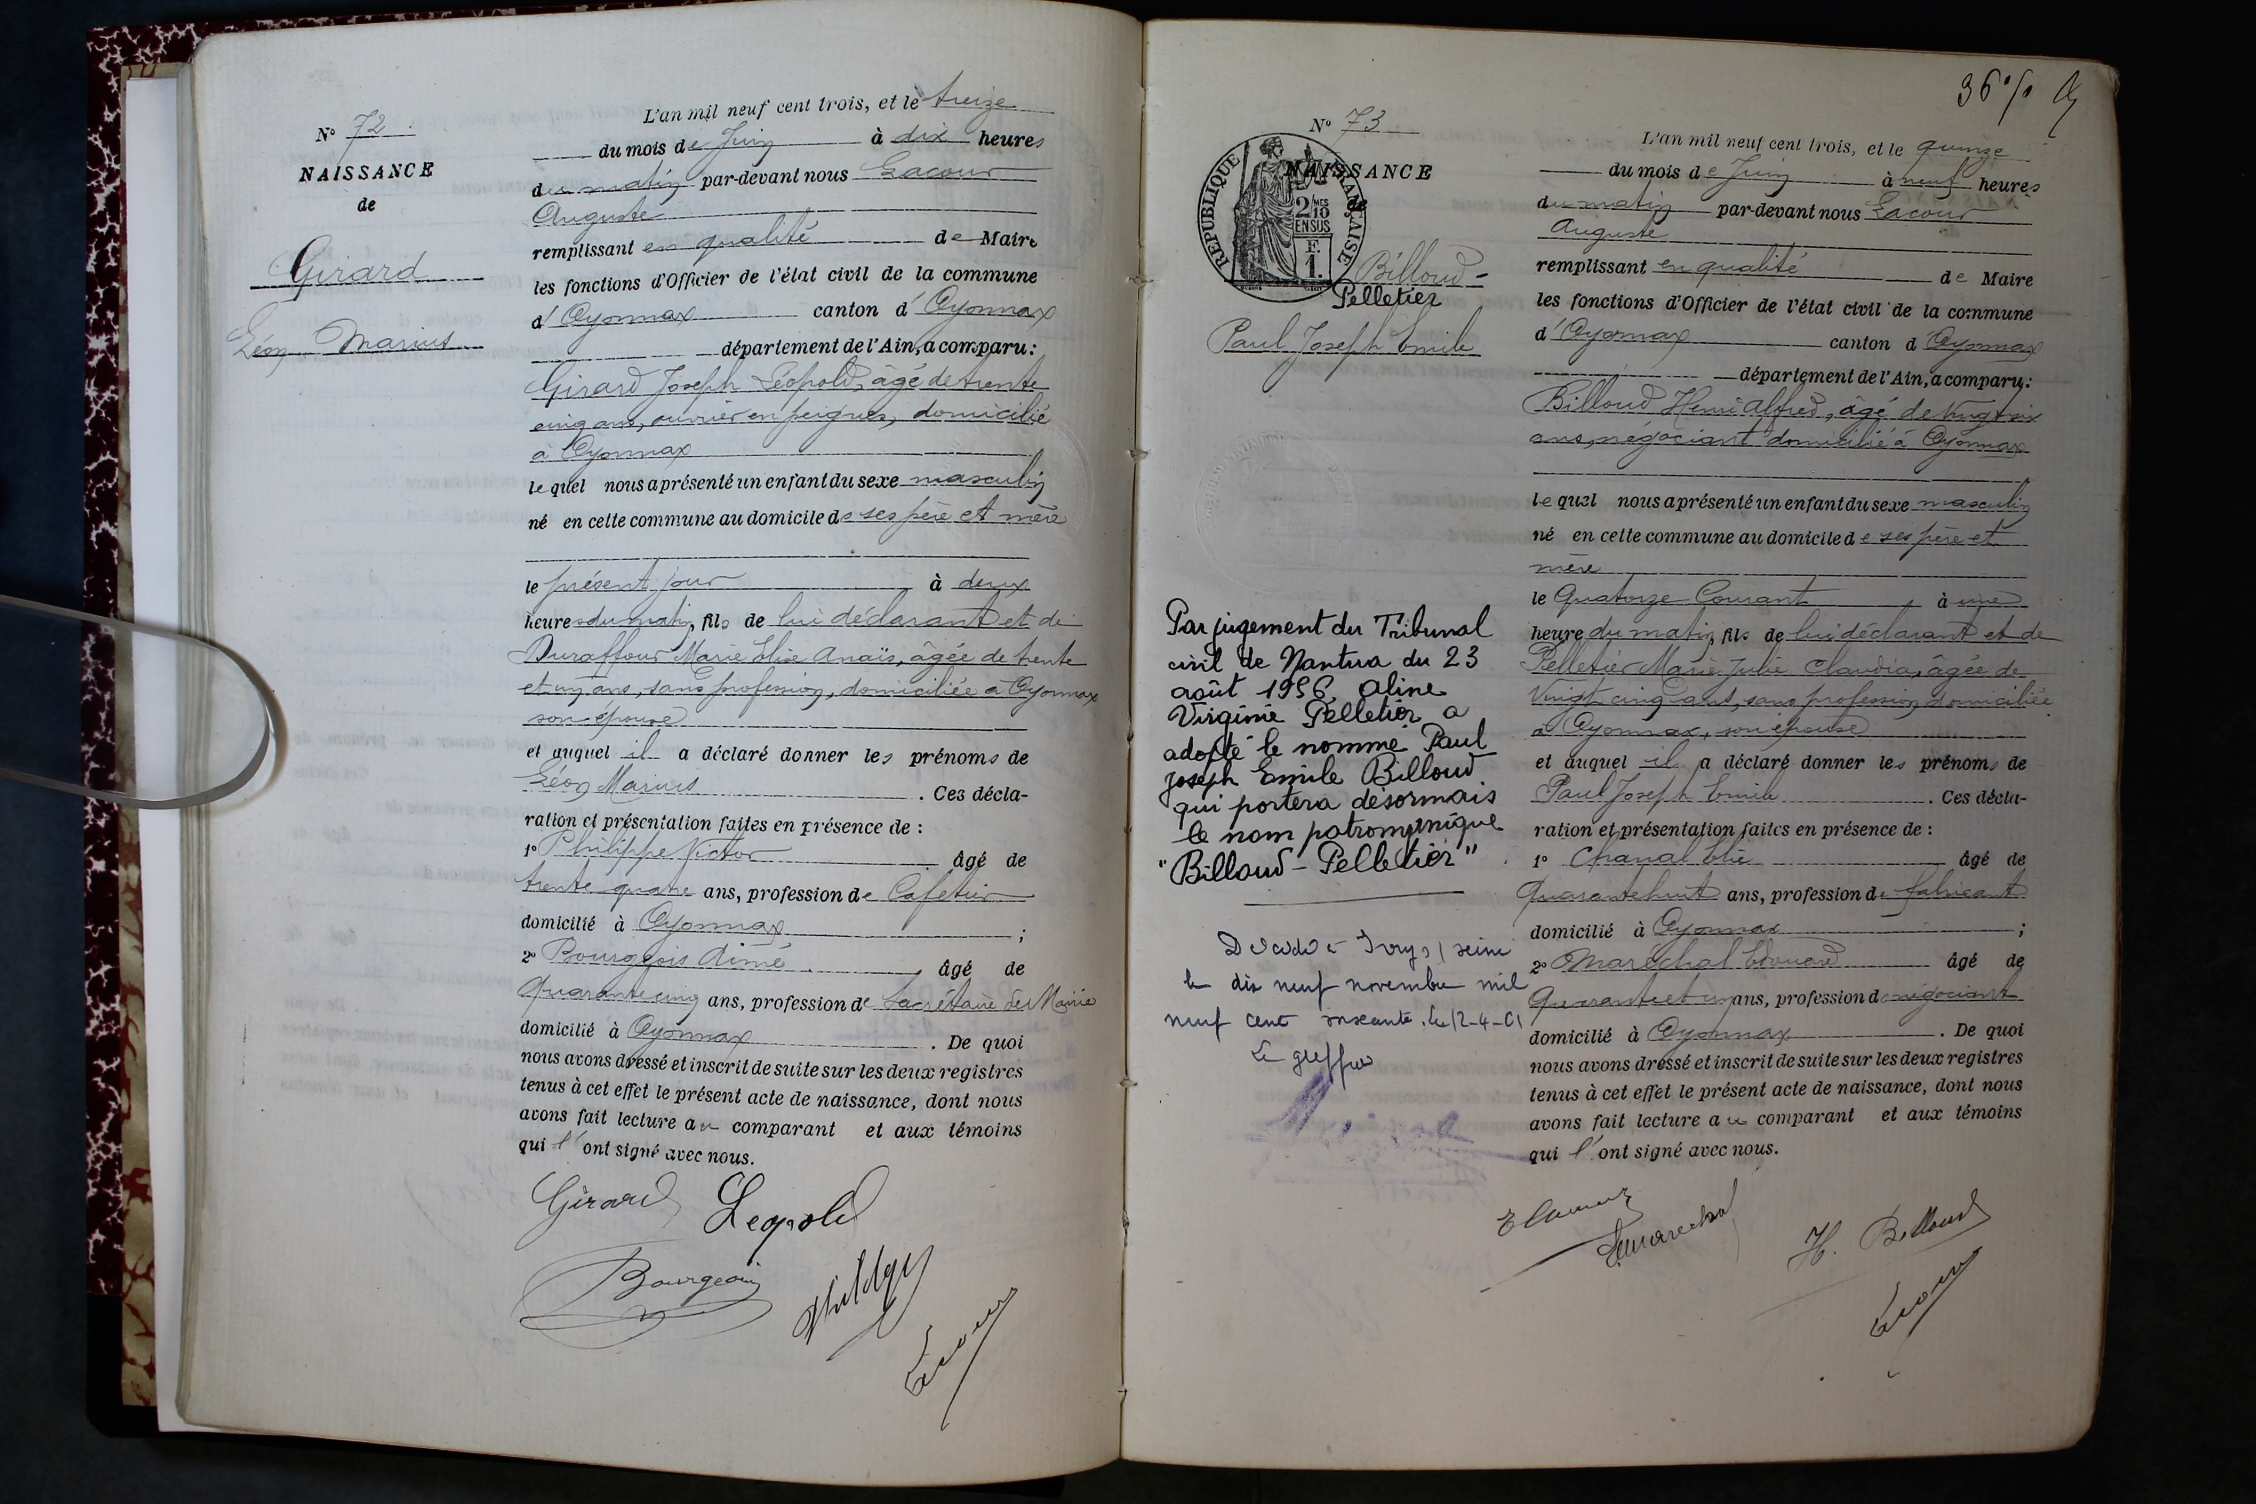 N° 72
NAISSANCE
de
Girard
Léon Marius
L'an mil neuf cent trois, et le treize
du mois de Juin à dix heures
du matin par-devant nous Lacour
Auguste
remplissant en qualité de Maire
les fonctions d'Officier de l'état civil de la commune
d'Oyonnax canton d'Oyonnax
département de l'Ain, a comparu:
Girard Joseph Léopold, âgé de trente
cinq ans, ouvrier en peignes, domicilié
à Oyonnax
lequel nous a présenté un enfant du sexe masculin
né en cette commune au domicile de ses père et mère
le présent jour à deux
heures du matin, fils de lui déclarant et de
Duraffour Marie Elise Anaïs, âgée de trente
et un ans, sans profession, domiciliée à Oyonnax
son épouse
et auquel il a déclaré donner les prénoms de
Léon Marius . Ces décla-
ration et présentation faites en présence de :
1° Philippe Victor âgé de
trente quatre ans, profession de Cafetier
domicilié à Oyonnax ;
2° Bourgeois Aimé , âgé de
quarante cinq ans, profession de Secrétaire de Mairie
domicilié à Oyonnax . De quoi
nous avons dressé et inscrit de suite sur les deux registres
tenus à cet effet le présent acte de naissance, dont nous
avons fait lecture au comparant et aux témoins
qui l'ont signé avec nous.
Girard Leopold
Bourgeois
Lacour
36
N° 73
NAISSANCE
de
REPUBLIQUE FRANÇAISE
2 MES
10
EN SUS
F.
1.
Billoud-
Pelletier
Paul Joseph Emile
Par jugement du Tribunal
civil de Nantua du 23
août 1956 Aline
Virginie Pelletier a
adopté le nommé Paul
Joseph Emile Billoud
qui portera désormais
le nom patronymique
"Billoud-Pelletier"
Décédé à Ivry s/ seine
le dix neuf novembre mil
neuf cent soixante. Le 12-4-61
Le greffier
L'an mil neuf cent trois, et le quinze
du mois de Juin à neuf heures
du matin par-devant nous Lacour
Auguste
remplissant en qualité de Maire
les fonctions d'Officier de l'état civil de la commune
d'Oyonnax canton d'Oyonnax
département de l'Ain, a comparu:
Billoud Henri Alfred, âgé de vingt six
ans, négociant domicilié à Oyonnax
lequel nous a présenté un enfant du sexe masculin
né en cette commune au domicile de ses père et
mère
le Quatorze Courant à une
heure du matin, fils de lui déclarant et de
Pelletier Marie Julie Claudia, âgée de
vingt cinq ans, sans profession domiciliée
à Oyonnax, son épouse
et auquel il a déclaré donner les prénoms de
Paul Joseph Emile . Ces décla-
ration et présentation faites en présence de :
1° Chanal Elie âgé de
Quarante huit ans, profession de fabricant
domicilié à Oyonnax ;
2° Maréchal Edouard âgé de
Quarante et un ans, profession de négociant
domicilié à Oyonnax . De quoi
nous avons dressé et inscrit de suite sur les deux registres
tenus à cet effet le présent acte de naissance, dont nous
avons fait lecture au comparant et aux témoins
qui l'ont signé avec nous.
H. Billoud
Lacour